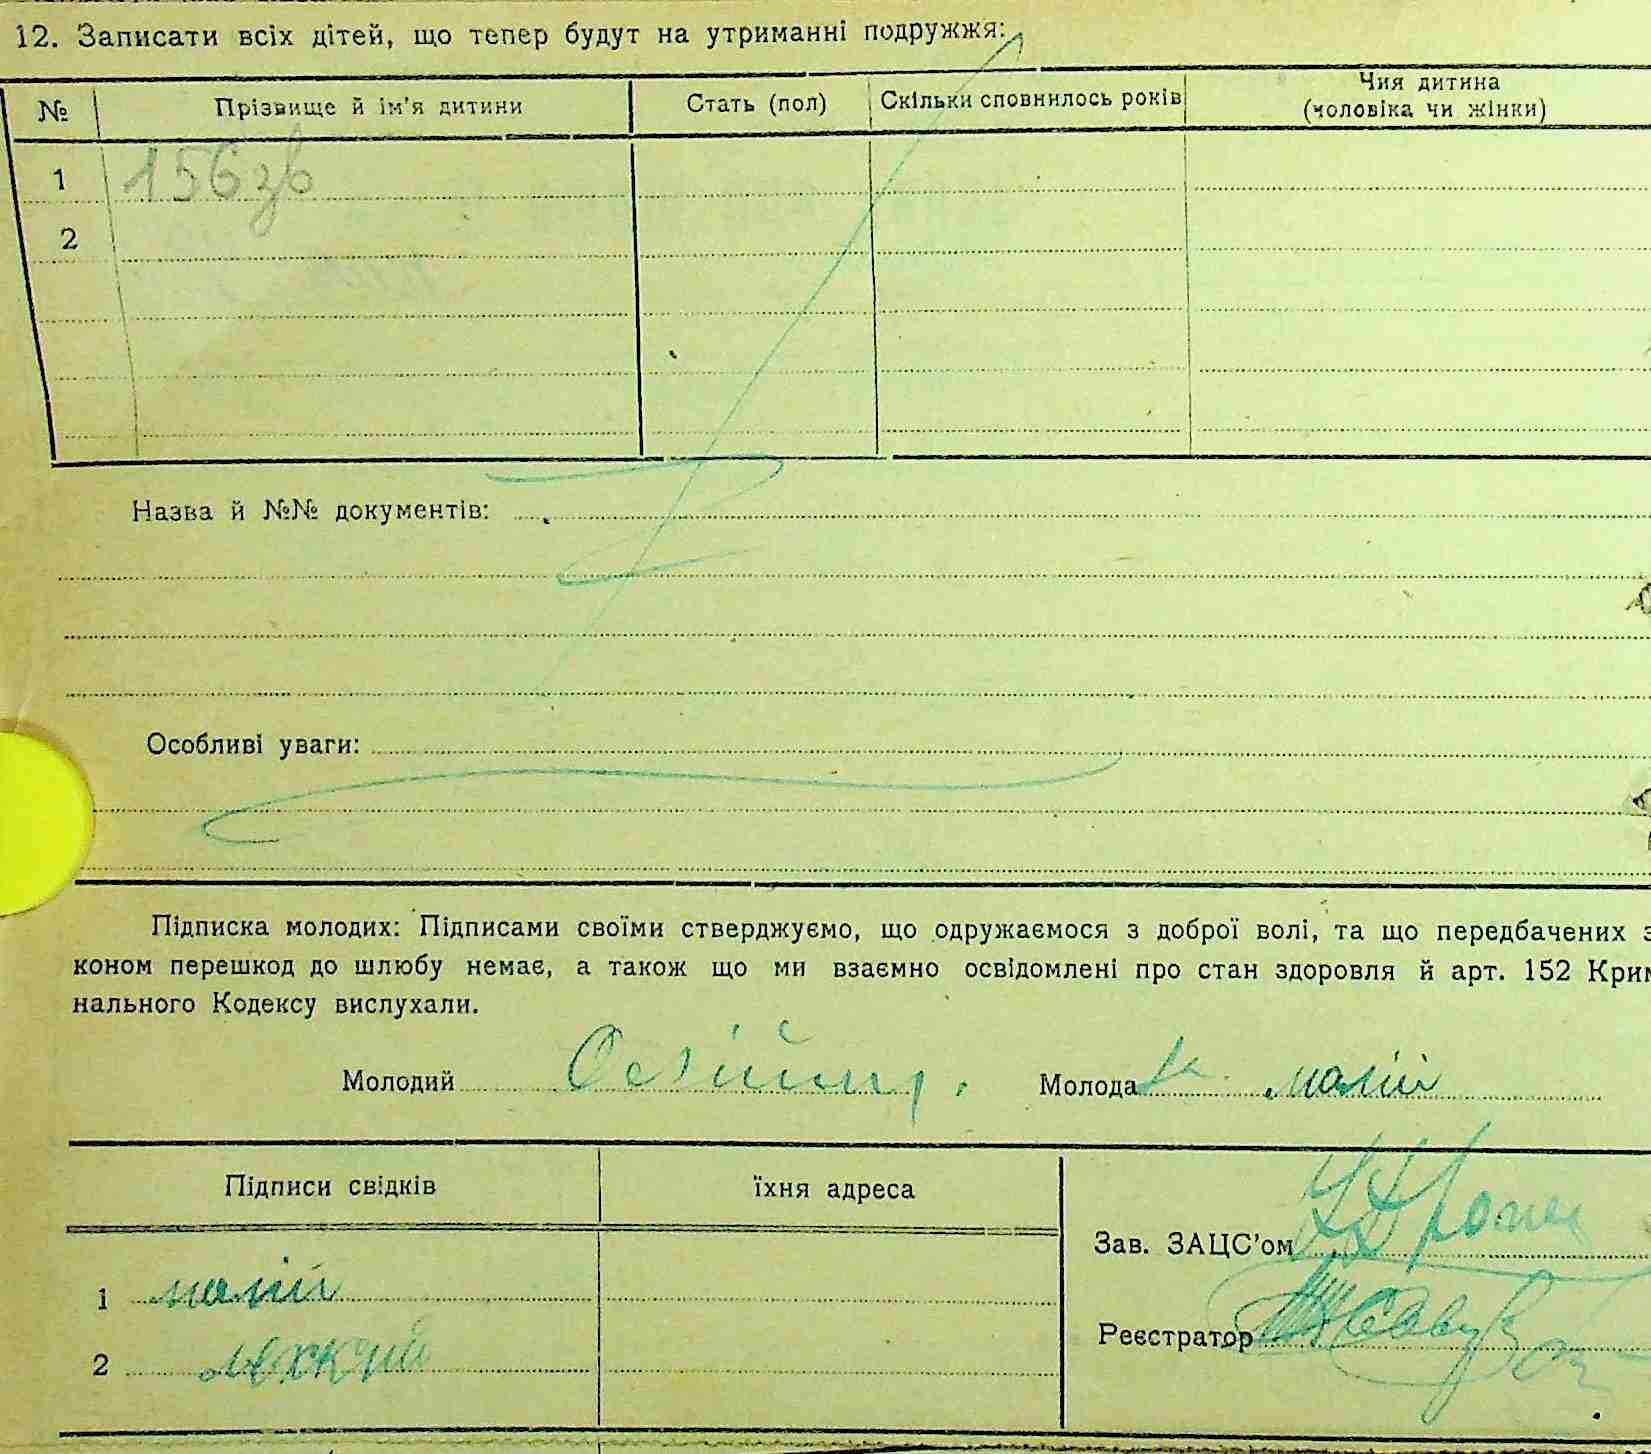 12. Записати всіх дітей, що тепер будут на утриманні подружжя:
№ Прізвище й ім'я дитини Стать (пол) Скільки сповнилось років Чия дитина
(чоловіка чи жінки)
1 156зв
2
Назва й №№ документів:
Особливі уваги:
Підписка молодих: Підписами своїми стверджуємо, що одружаємося з доброї волі, та що передбачених з
коном перешкод до шлюбу немає, а також що ми взаємно освідомлені про стан здоровля й арт. 152 Крим
нального Кодексу вислухали.
Молодий Молода малій
Підписи свідків їхня адреса
Зав. ЗАЦС'ом
1 малій
Реєстратор
2